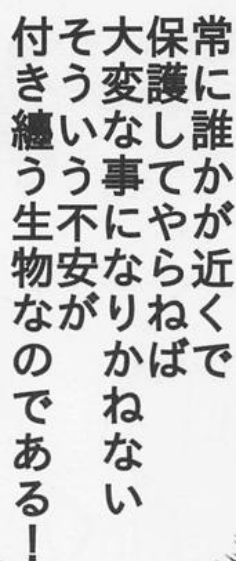 常に誰かが近くで
保護してやらねば
大変な事になりかねない
そういう不安が
付き纏う生物なのである！